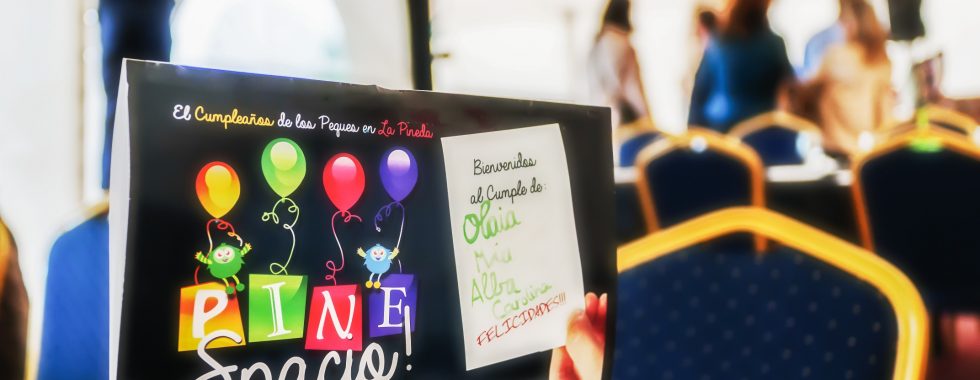 El Cumpleaños de los Peques en La Pineda
PINE
Spacio!
Bienvenidos
al Cumple de:
Olaia
Mía
Alba
Carolina
FELICIDADES!!!